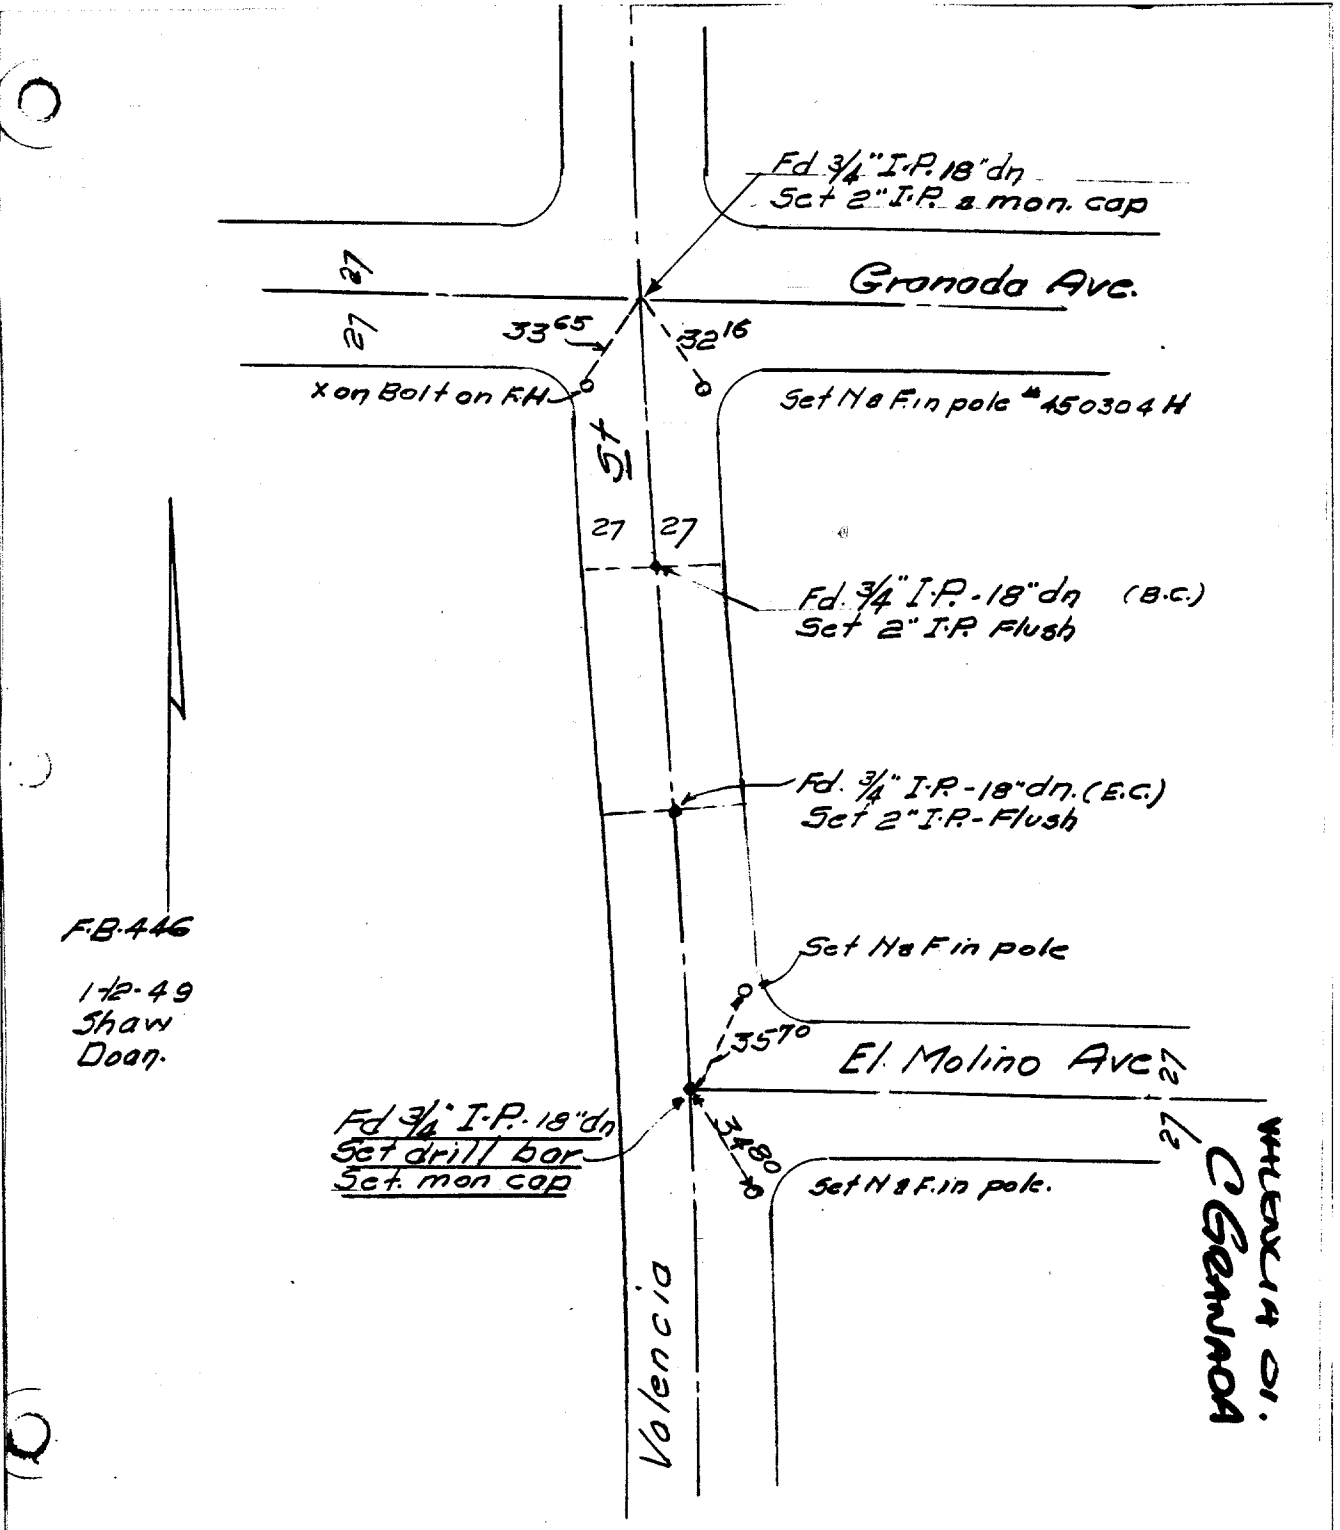 Fd 3/4" I.P. 18" dn
Set 2" I.P. & mon. cap
Granada Ave.
27
27
33 65
32 16
X on Bolt on F.H.
Set N & F. in pole #450304 H
St
27 27
Fd. 3/4" I.P. - 18" dn (B.C.)
Set 2" I.P. Flush
Fd. 3/4" I.P. - 18" dn. (E.C.)
Set 2" I.P. - Flush
F.B. 446
1-12-49
Shaw
Doan.
Set N & F in pole
35 70
El Molino Ave
27
27
Fd 3/4" I.P. 18" dn
Set drill bar
Set. mon cap
34 80
Set N & F. in pole.
Valencia
VALENCIA ST.
C GRANADA